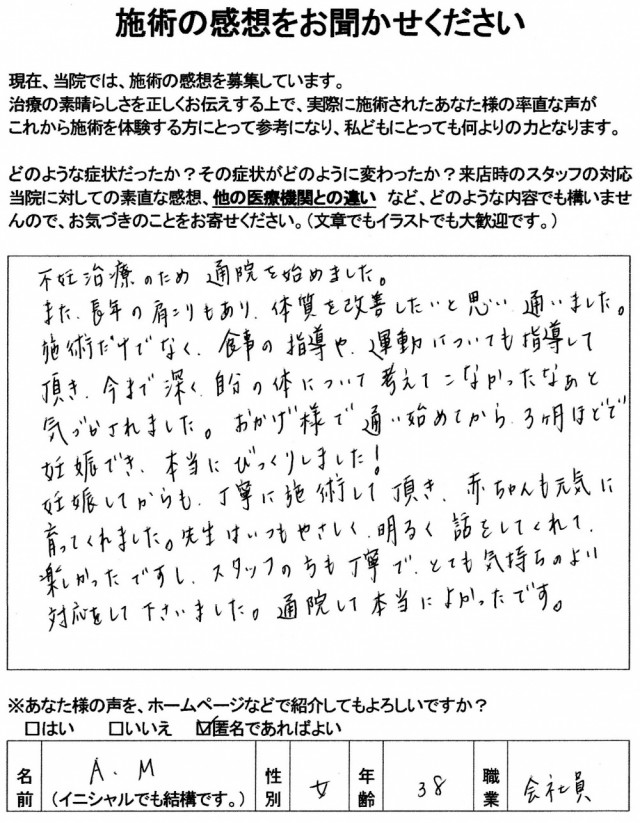 施術の感想をお聞かせください
現在、当院では、施術の感想を募集しています。
治療の素晴らしさを正しくお伝えする上で、実際に施術されたあなた様の率直な声が
これから施術を体験する方にとって参考になり、私どもにとっても何よりの力となります。
どのような症状だったか？その症状がどのように変わったか？来店時のスタッフの対応
当院に対しての素直な感想、他の医療機関との違い など、どのような内容でも構いませ
んので、お気づきのことをお寄せください。（文章でもイラストでも大歓迎です。）
不妊治療のため 通院を始めました。
また、長年の肩こりもあり、体質を改善したいと思い、通いました。
施術だけでなく、食事の指導や、運動についても指導して
頂き、今まで深く、自分の体について考えてこなかったなぁと
気づかされました。おかげ様で通い始めてから、3ヶ月ほどで
妊娠でき、本当にびっくりしました！
妊娠してからも、丁寧に施術して頂き、赤ちゃんも元気に
育ってくれました。先生はいつもやさしく、明るく話をしてくれて、
楽しかったですし、スタッフのちも丁寧で、とても気持ちのよい
対応をして下さいました。通院して本当によかったです。
※あなた様の声を、ホームページなどで紹介してもよろしいですか？
□はい □いいえ ☑匿名であればよい
名前 A.M （イニシャルでも結構です。） 性別 女 年齢 38 職業 会社員